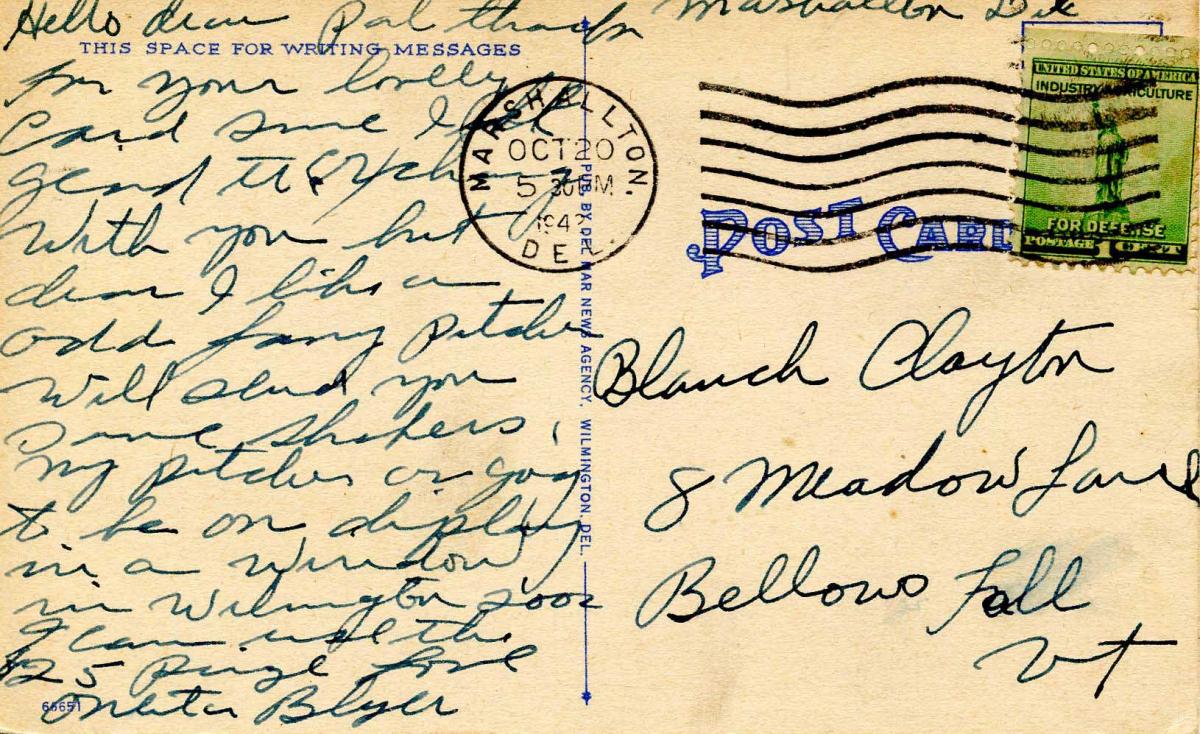 Hello dear Pal thanks
Marshallton Del
THIS SPACE FOR WRITING MESSAGES
for your lovely
Card sure I
glad to
With you but
dear I like a
odd fancy pitcher
Will send you
some shakers,
my pitcher
to be on display
in a window
in Wilmington soon
I can use the
$25
love
Blyer
66651
PUB. BY DEL MAR NEWS AGENCY, WILMINGTON, DEL.
MARSHALLTON.
OCT 20
5 30 PM
1942
DEL.
POST CARD
UNITED STATES OF AMERICA
INDUSTRY AGRICULTURE
FOR DEFENSE
POSTAGE 1 CENT
Blanch Clayton
8 Meadow Lane
Bellows Fall
Vt